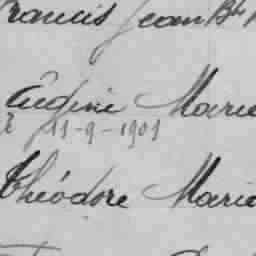 Francis Jean Bte
Eugène Marie
11-9-1901
Théodore Marie